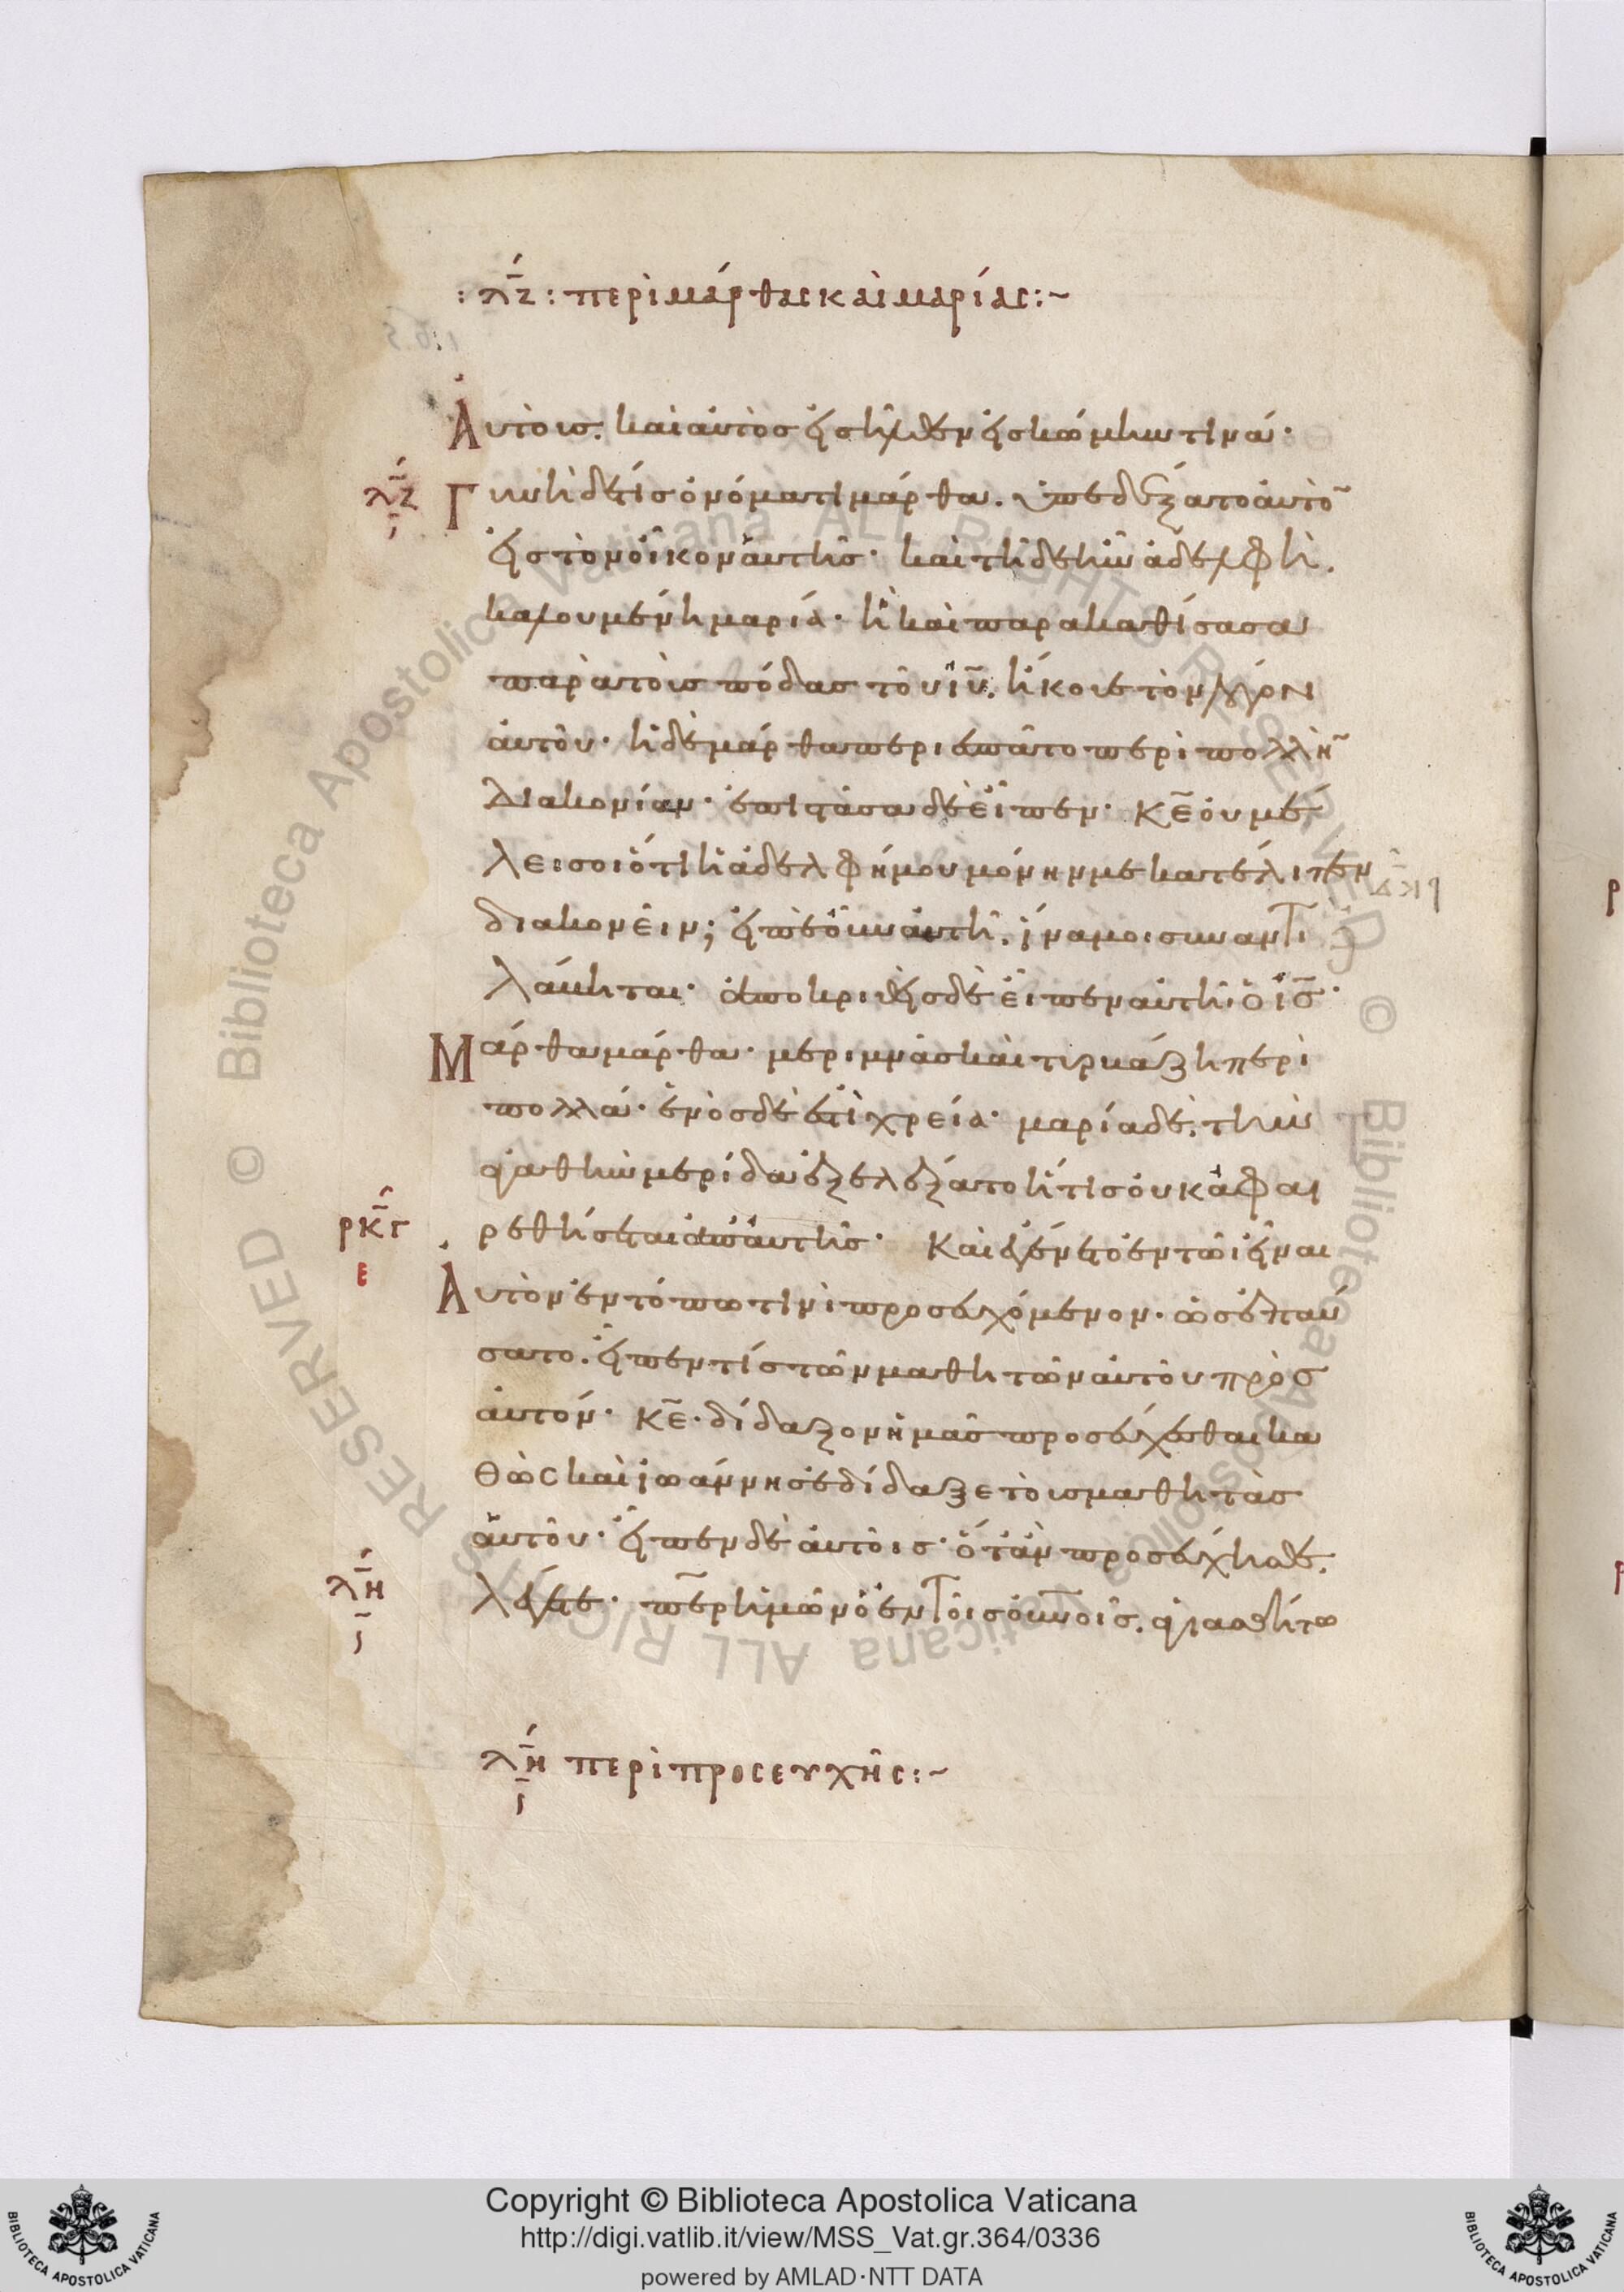 : λ̅ζ : περὶ μάρθας καὶ μαρίας :~
Αὐτοὺς. καὶ αὐτὸς εἰσῆλθεν εἰς κώμην τινά·
λ̅ζ
ι̅
Γυνὴ δέ τις ὀνόματι μάρθα. ὑπεδέξατο αὐτὸ̅
εἰς τὸν οἶκον αὐτῆς· καὶ τῆδε ἦν ἀδελφὴ.
καλουμένη μαρία· ἣ καὶ παρακαθίσασα
παρὰ τοὺς πόδας τοῦ ι̅υ̅. ἤκουε τὸν λόγον
αὐτοῦ· ἡ δὲ μάρθα περιεσπᾶτο περὶ πολλὴ̅
διακονίαν· ἐπιστᾶσα δὲ εἶπεν· κ̅ε̅ οὐ μέ
λει σοι ὅτι ἡ ἀδελφή μου μόνην με κατέλιπεν
διακονεῖν; εἰπὲ οὖν αὐτῆ. ἵνα μοι συναντι
λάβηται· ἀποκριθεὶς δὲ εἶπεν αὐτῆ ὁ ι̅ς̅·
Μάρθα μάρθα· μεριμνᾶς καὶ τυρβάζη περὶ
πολλά· ἑνὸς δέ ἐστὶ χρεία· μαρία δὲ. τὴν
ἀγαθὴν μερίδα ἐξελέξατο ἥτις οὐκ ἀφαι
ρεθήσεται ἀπ' αὐτῆς· Καὶ ἐγένετο ἐν τῶ εἶναι
ρ̅κ̅γ
ε
Αὐτὸν ἐν τόπω τινὶ προσευχόμενον· ὡς ἐπαύ
σατο. εἶπεν τίς τῶν μαθητῶν αὐτοῦ πρὸς
αὐτόν· κ̅ε̅· δίδαξον ἡμᾶς προσεύχεσθαι κα
θὼς καὶ ἰωάννης ἐδίδαξε τοὺς μαθητὰς
αὐτοῦ· εἶπεν δὲ αὐτοῖς· ὅταν προσεύχησθε.
λ̅η
ι̅
λέγετε· π̅ε̅ρ ἡμῶν ὁ ἐν τοῖς οὐ̅νοῖς. ἁγιασθήτω
λ̅η περὶ προσευχῆς :~
ι̅
Copyright © Biblioteca Apostolica Vaticana
http://digi.vatlib.it/view/MSS_Vat.gr.364/0336
powered by AMLAD·NTT DATA